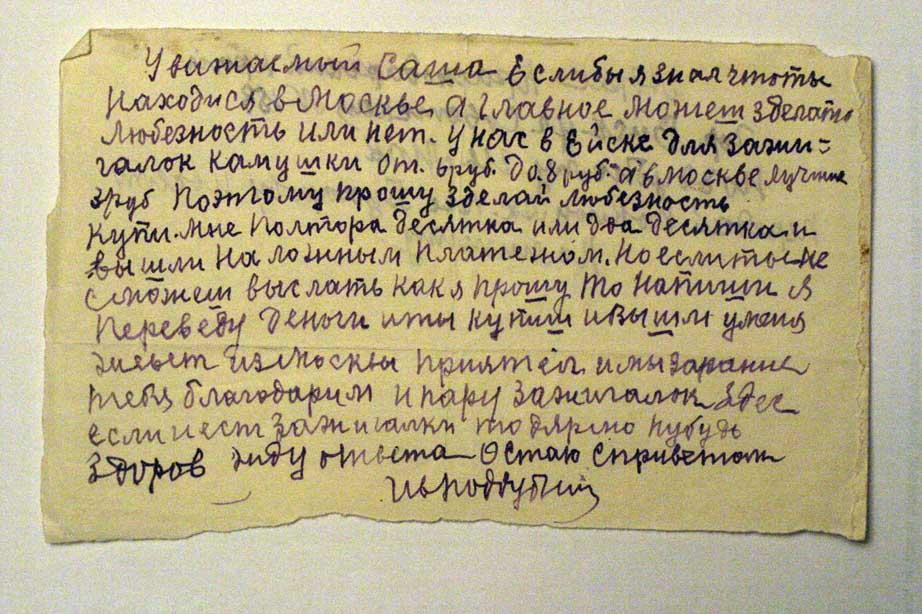 Уважаемый Саша Еслибы я знал чтоты
находися в Москве, а главное можеш зделать
любезность или нет. у нас в Ейске для зажи=
галок камушки от. 6 руб. до. 8 руб. а в Москве лучшие
3 руб Поэтому прошу зделай любезность
купи. мне полтора десятка или два десятка и
вышли наложным платежом. Но если ты не
сможеш выслать как я прошу то напиши я
переведу деньги и ты купиш и вышли у меня
живет из Москвы приятел и мы зарание
тебя благодарим и пару зажигалок здес
если и ест зажигалки то дярмо ну будь
здоров жду ответа Остаю с приветом
Ив Поддубный